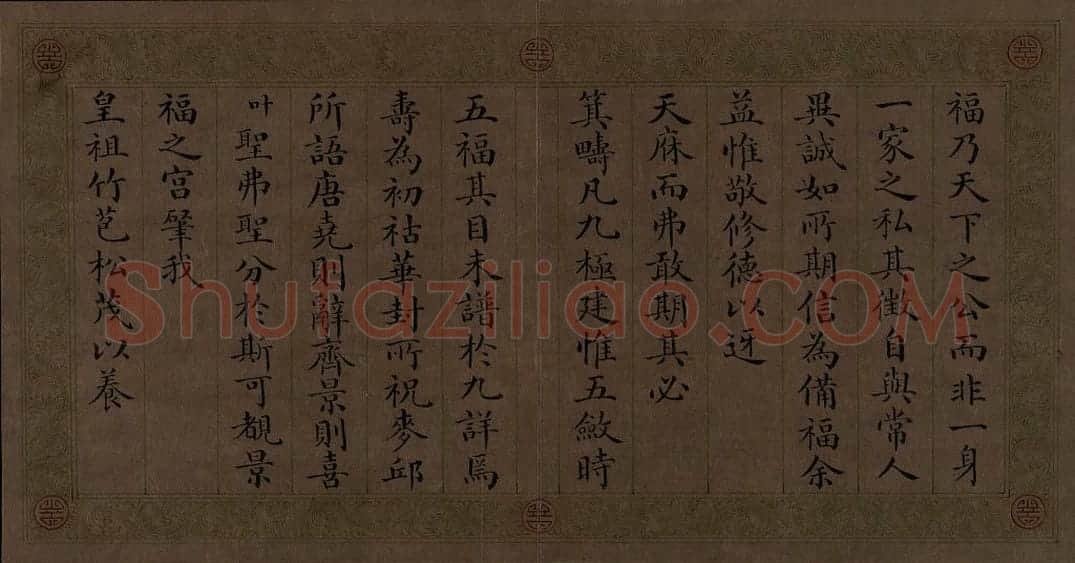 福乃天下之公而非一身
一家之私其徵自與常人
異誠如所期信為備福余
益惟敬修德以迓
天庥而弗敢期其必
箕疇凡九極建惟五斂時
五福其目未譜於九詳焉
壽為初祜華封所祝麥邱
所語唐堯則辭齊景則喜
叶聖弗聖分於斯可覩景
福之宮肇我
皇祖竹苞松茂以養
Shufaziliao.COM